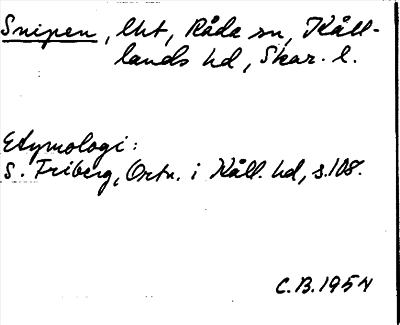 Snipen, lht, Råda sn, Kåll-
lands hd, Skar. l.
Etymologi:
S. Friberg, Ortn. i Kåll. hd, s. 108.
C.B. 1954